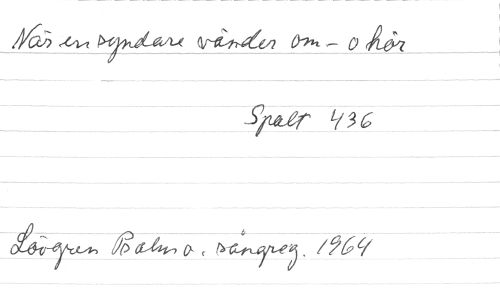 När en syndare vänder om – o hör
Spalt 436
Lövgren Psalm o. sångreg. 1964